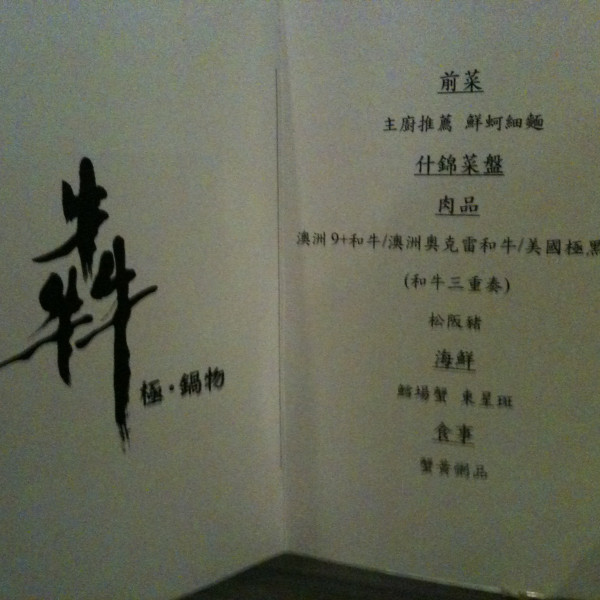 犇
極·鍋物
前菜
主廚推薦 鮮蚵細麵
什錦菜盤
肉品
澳洲9+和牛/澳洲奧克雷和牛/美國極黑
(和牛三重奏)
松阪豬
海鮮
鱈場蟹 東星斑
食事
蟹黃粥品